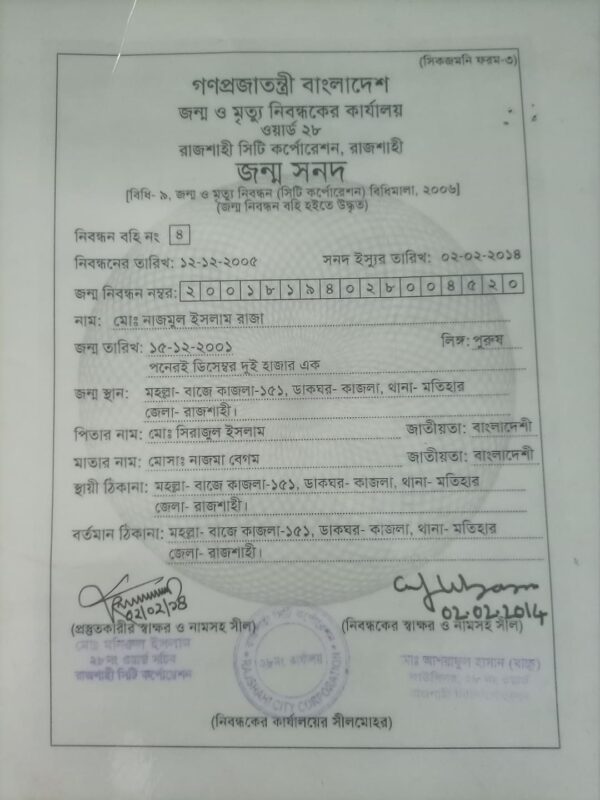 (সিকজমনি ফরম-৩)
গণপ্রজাতন্ত্রী বাংলাদেশ
জন্ম ও মৃত্যু নিবন্ধকের কার্যালয়
ওয়ার্ড ২৮
রাজশাহী সিটি কর্পোরেশন, রাজশাহী
জন্ম সনদ
[বিধি- ৯, জন্ম ও মৃত্যু নিবন্ধন (সিটি কর্পোরেশন) বিধিমালা, ২০০৬]
(জন্ম নিবন্ধন বহি হইতে উদ্ধৃত)
নিবন্ধন বহি নং ৪
নিবন্ধনের তারিখ: ১২-১২-২০০৫ সনদ ইস্যুর তারিখ: ০২-০২-২০১৪
জন্ম নিবন্ধন নম্বর: ২ ০ ০ ১ ৮ ১ ৯ ৪ ০ ২ ৮ ০ ০ ৪ ৫ ২ ০
নাম: মোঃ নাজমুল ইসলাম রাজা
জন্ম তারিখ: ১৫-১২-২০০১ লিঙ্গ: পুরুষ
পনেরই ডিসেম্বর দুই হাজার এক
জন্ম স্থান: মহল্লা- বাজে কাজলা-১৫১, ডাকঘর- কাজলা, থানা- মতিহার
জেলা- রাজশাহী।
পিতার নাম: মোঃ সিরাজুল ইসলাম জাতীয়তা: বাংলাদেশী
মাতার নাম: মোসাঃ নাজমা বেগম জাতীয়তা: বাংলাদেশী
স্থায়ী ঠিকানা: মহল্লা- বাজে কাজলা-১৫১, ডাকঘর- কাজলা, থানা- মতিহার
জেলা- রাজশাহী।
বর্তমান ঠিকানা: মহল্লা- বাজে কাজলা-১৫১, ডাকঘর- কাজলা, থানা- মতিহার
জেলা- রাজশাহী।
02/02/14 02.02.2014
(প্রস্তুতকারীর স্বাক্ষর ও নামসহ সীল) (নিবন্ধকের স্বাক্ষর ও নামসহ সীল)
মোঃ মনিরুল ইসলাম
২৮ নং ওয়ার্ড সচিব
রাজশাহী সিটি কর্পোরেশন
২৮নং কার্যালয়
RAJSHAHI CITY CORPORATION
মোঃ আশরাফুল হাসান
২৮ নং ওয়ার্ড
(নিবন্ধকের কার্যালয়ের সীলমোহর)